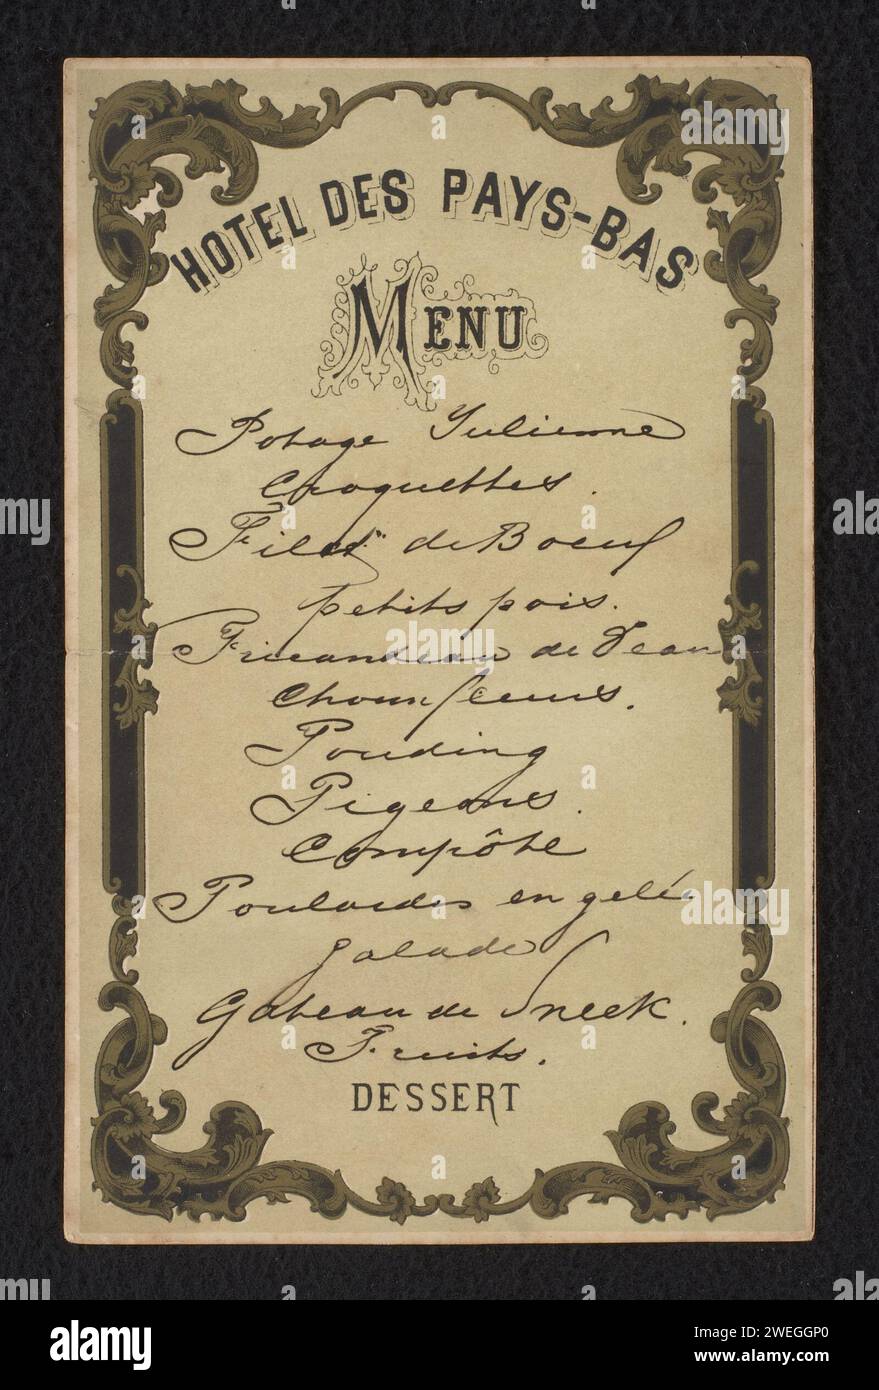 HOTEL DES PAYS-BAS
MENU
Potage Julienne
Croquettes.
Filet de Boeuf
petits pois.
Fricandeau de Veau
Chouxfleurs.
Pouding
Pigeons.
Compôte
Poulardes en gelé
Salade
Gateau de Sneek.
Fruits.
DESSERT
alamy
Image ID: 2WEGGP0
www.alamy.com